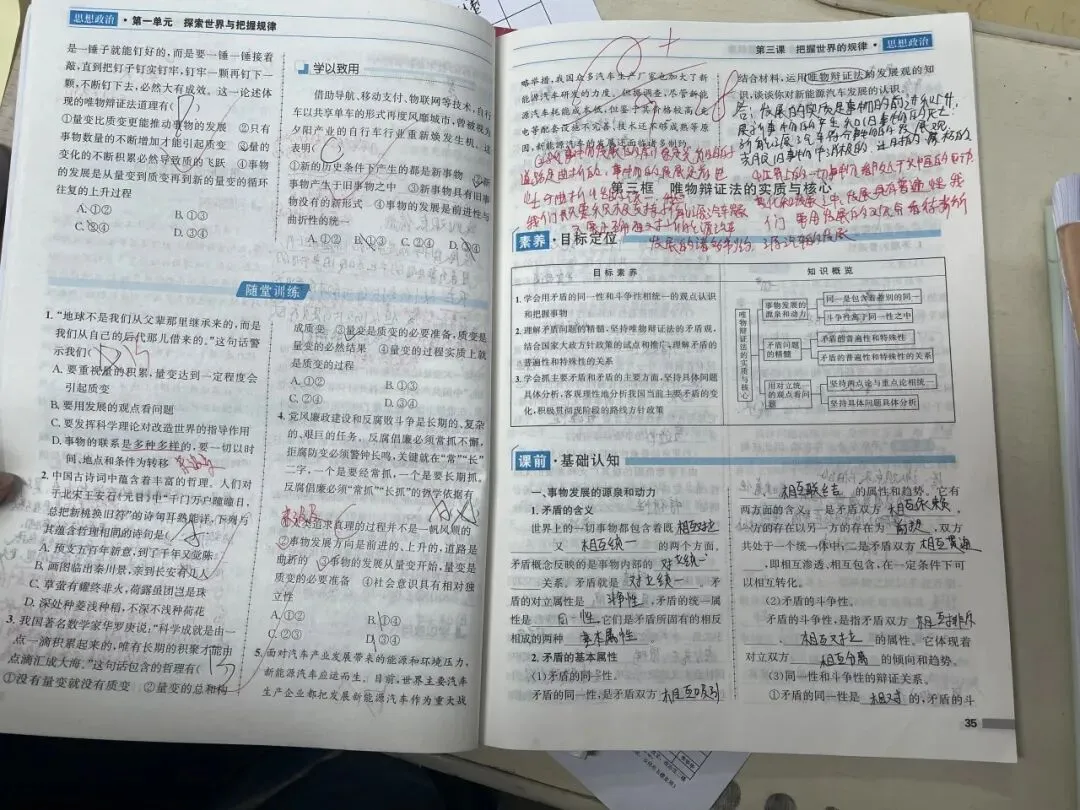 思想政治 · 第一单元 探索世界与把握规律
是一锤子就能钉好的,而是要一锤一锤接着
敲,直到把钉子钉实钉牢,钉牢一颗再钉下一
颗,不断钉下去,必然大有成效。这一论述体
现的唯物辩证法道理有( )
①量变比质变更能推动事物的发展 ②只有
事物数量的不断增加才能引起质变 ③量的
变化的不断积累必然导致质的飞跃 ④事物
的发展是从量变到质变再到新的量变的循环
往复的上升过程
A. ①② B. ①③
C. ②④ D. ③④
学以致用
借助导航、移动支付、物联网等技术,自行
车以共享单车的形式再度风靡城市,曾被视为
夕阳产业的自行车行业重新焕发生机。这
表明( )
①新的历史条件下产生的都是新事物 ②新
事物产生于旧事物之中 ③新事物具有旧事
物没有的新形式 ④事物的发展是前进性与
曲折性的统一
A. ①② B. ①③ C. ②④ D. ③④
随堂训练
1. “地球不是我们从父辈那里继承来的,而是
我们从自己的后代那儿借来的。”这句话警
示我们( )
A. 要重视量的积累,量变达到一定程度会
引起质变
B. 要用发展的观点看问题
C. 要发挥科学理论对改造世界的指导作用
D. 事物的联系是多种多样的,要一切以时
间、地点和条件为转移
2. 中国古诗词中蕴含着丰富的哲理。人们对
于北宋王安石《元日》中“千门万户曈曈日,
总把新桃换旧符”的诗句耳熟能详,下列与
其蕴含哲理相同的诗句是( )
A. 预支五百年新意,到了千年又觉陈
B. 画图临出秦川景,亲到长安有几人
C. 草萤有耀终非火,荷露虽团岂是珠
D. 深处种菱浅种稻,不深不浅种荷花
3. 我国著名数学家华罗庚说:“科学成就是由一
点一滴积累起来的,唯有长期的积聚才能由
点滴汇成大海。”这句话包含的哲理有( )
①没有量变就没有质变 ②量变的总和构
成质变 ③量变是质变的必要准备,质变是
量变的必然结果 ④量变的过程实质上就
是质变的过程
A. ①② B. ①③
C. ②④ D. ③④
4. 党风廉政建设和反腐败斗争是长期的、复杂
的、艰巨的任务。反腐倡廉必须常抓不懈,
拒腐防变必须警钟长鸣,关键就在“常”“长”
二字,一个是要经常抓,一个是要长期抓。
反腐倡廉必须“常抓”“长抓”的哲学依据有
类追求真理的过程并不是一帆风顺的
②事物发展方向是前进的、上升的,道路是
曲折的 ③事物的发展从量变开始,量变是
质变的必要准备 ④社会意识具有相对独
立性
A. ①② B. ①④
C. ②③ D. ③④
5. 面对汽车产业发展带来的能源和环境压力,
新能源汽车应运而生。目前,世界主要汽车
生产企业都把发展新能源汽车作为重大战
第三课 把握世界的规律 · 思想政治
略举措,我国众多汽车生产厂家也加大了新
能源汽车研发的力度。但据调查,尽管新能
源汽车耗能成本低,但鉴于其价格较高,充
电等配套设施不完善、技术还不够成熟等原
因,新能源汽车的发展还面临诸多制约。
结合材料,运用唯物辩证法的发展观的知
识,谈谈你对新能源汽车发展的认识。
第三框 唯物辩证法的实质与核心
素养 · 目标定位
目标素养
1. 学会用矛盾的同一性和斗争性相统一的观点认识
和把握事物
2. 理解矛盾问题的精髓,坚持唯物辩证法的矛盾观,
结合国家大政方针政策的试点和推广,理解矛盾的
普遍性和特殊性的关系
3. 学会抓主要矛盾和矛盾的主要方面,坚持具体问题
具体分析,客观理性地分析我国当前主要矛盾的变
化,积极贯彻现阶段的路线方针政策
知识概览
唯物辩证法的实质与核心
事物发展的源泉和动力
同一是包含着差别的同一
斗争性寓于同一性之中
矛盾问题的精髓
矛盾的普遍性和特殊性
矛盾的普遍性和特殊性的关系
用对立统一的观点看问题
坚持两点论与重点论相统一
坚持具体问题具体分析
课前 · 基础认知
一、事物发展的源泉和动力
1. 矛盾的含义
世界上的一切事物都包含着既 相互对立
又 相互统一 的两个方面。
矛盾概念反映的是事物内部的 对立统一
关系。矛盾就是 对立统一 。矛
盾的对立属性是 斗争性 ,矛盾的统一属
性是 同一性 ,它们是矛盾所固有的相反
相成的两种 基本属性 。
2. 矛盾的基本属性
(1)矛盾的同一性。
矛盾的同一性,是指矛盾双方 相互吸引
、 相互联结 的属性和趋势。它有
两方面的含义:一是矛盾双方 相互依赖 ,
一方的存在以另一方的存在为 前提 ,双方
共处于一个统一体中;二是矛盾双方 相互贯通
,即相互渗透、相互包含,在一定条件下可
以相互转化。
(2)矛盾的斗争性。
矛盾的斗争性,是指矛盾双方 相互排斥
、 相互对立 的属性。它体现着
对立双方 相互分离 的倾向和趋势。
(3)同一性和斗争性的辩证关系。
①矛盾的同一性是 相对 的,矛盾的斗
35